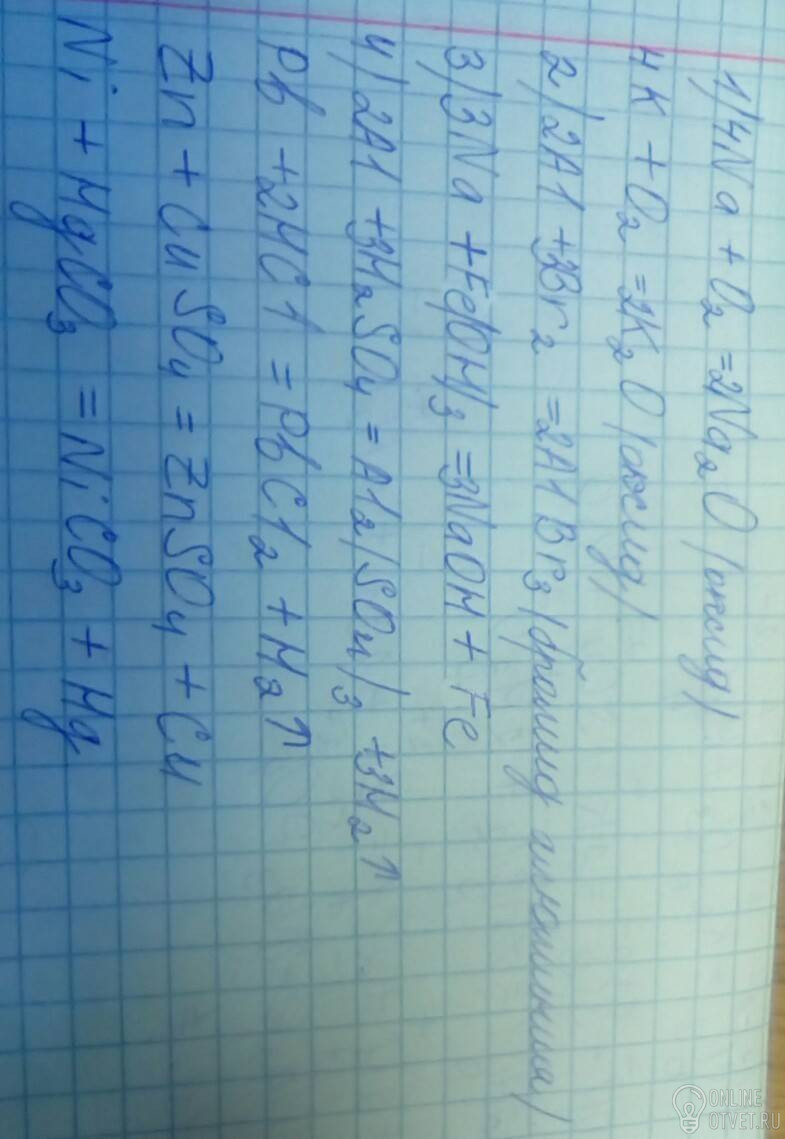 1) 4Na + O₂ = 2Na₂O (оксид)
4K + O₂ = 2K₂O (оксид)
2) 2Al + 3Br₂ = 2AlBr₃ (бромид алюминия)
3) 3Na + Fe(OH)₃ = 3NaOH + Fe
4) 2Al + 3H₂SO₄ = Al₂(SO₄)₃ + 3H₂↑
Pb + 2HCl = PbCl₂ + H₂↑
Zn + CuSO₄ = ZnSO₄ + Cu
Ni + HgCO₃ = NiCO₃ + Hg
ONLINE
OTVET.RU